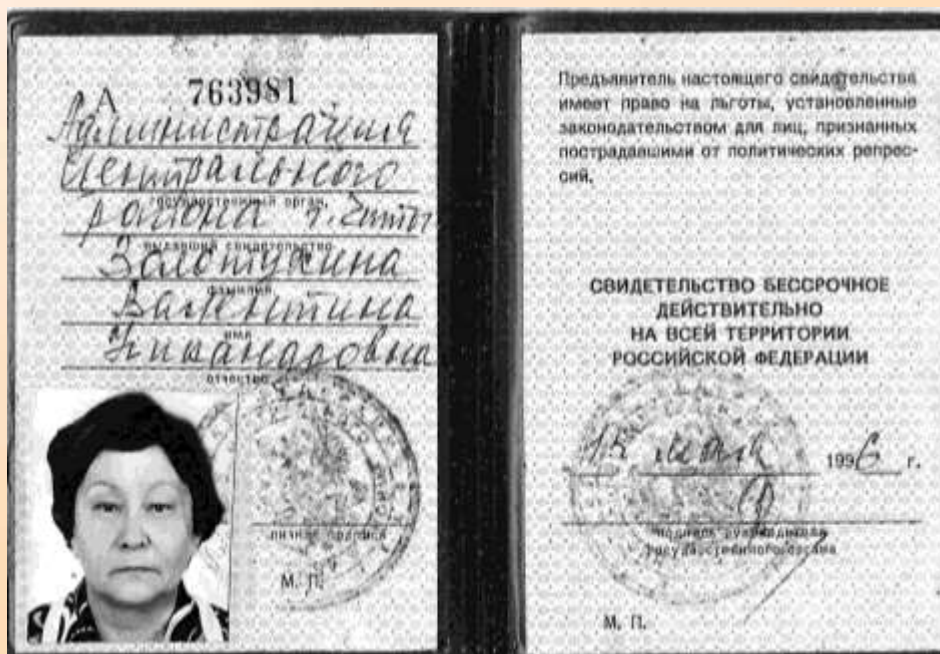 А 763981
Администрация
Центрального
государственный орган,
района г. Читы
выдавший свидетельство
Золотухина
фамилия
Валентина
имя
Никандровна
отчество
личная подпись
М. П.
Предъявитель настоящего свидетельства
имеет право на льготы, установленные
законодательством для лиц, признанных
пострадавшими от политических репрес-
сий.
СВИДЕТЕЛЬСТВО БЕССРОЧНОЕ
ДЕЙСТВИТЕЛЬНО
НА ВСЕЙ ТЕРРИТОРИИ
РОССИЙСКОЙ ФЕДЕРАЦИИ
мая 1996 г.
подпись руководителя
государственного органа
М. П.